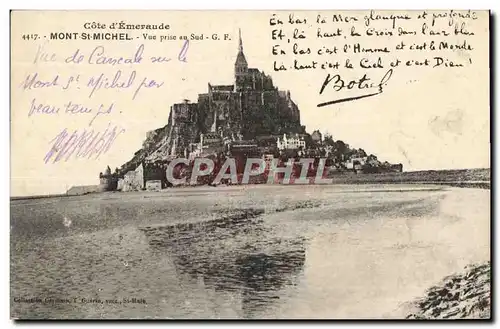 Côte d'Émeraude
4417. - MONT-St-MICHEL. - Vue prise au Sud - G. F.
En bas la Mer glauque et profonde
Et, là haut, la Croix dans l'air bleu
En bas c'est l'Homme et c'est le Monde
Là haut c'est le Ciel et c'est Dieu !
Botrel
Vue de Cancale ou le
Mont St Michel par
beau temps.
CAPHILI
Collections Germain, F. Guérin, succ., St-Malo